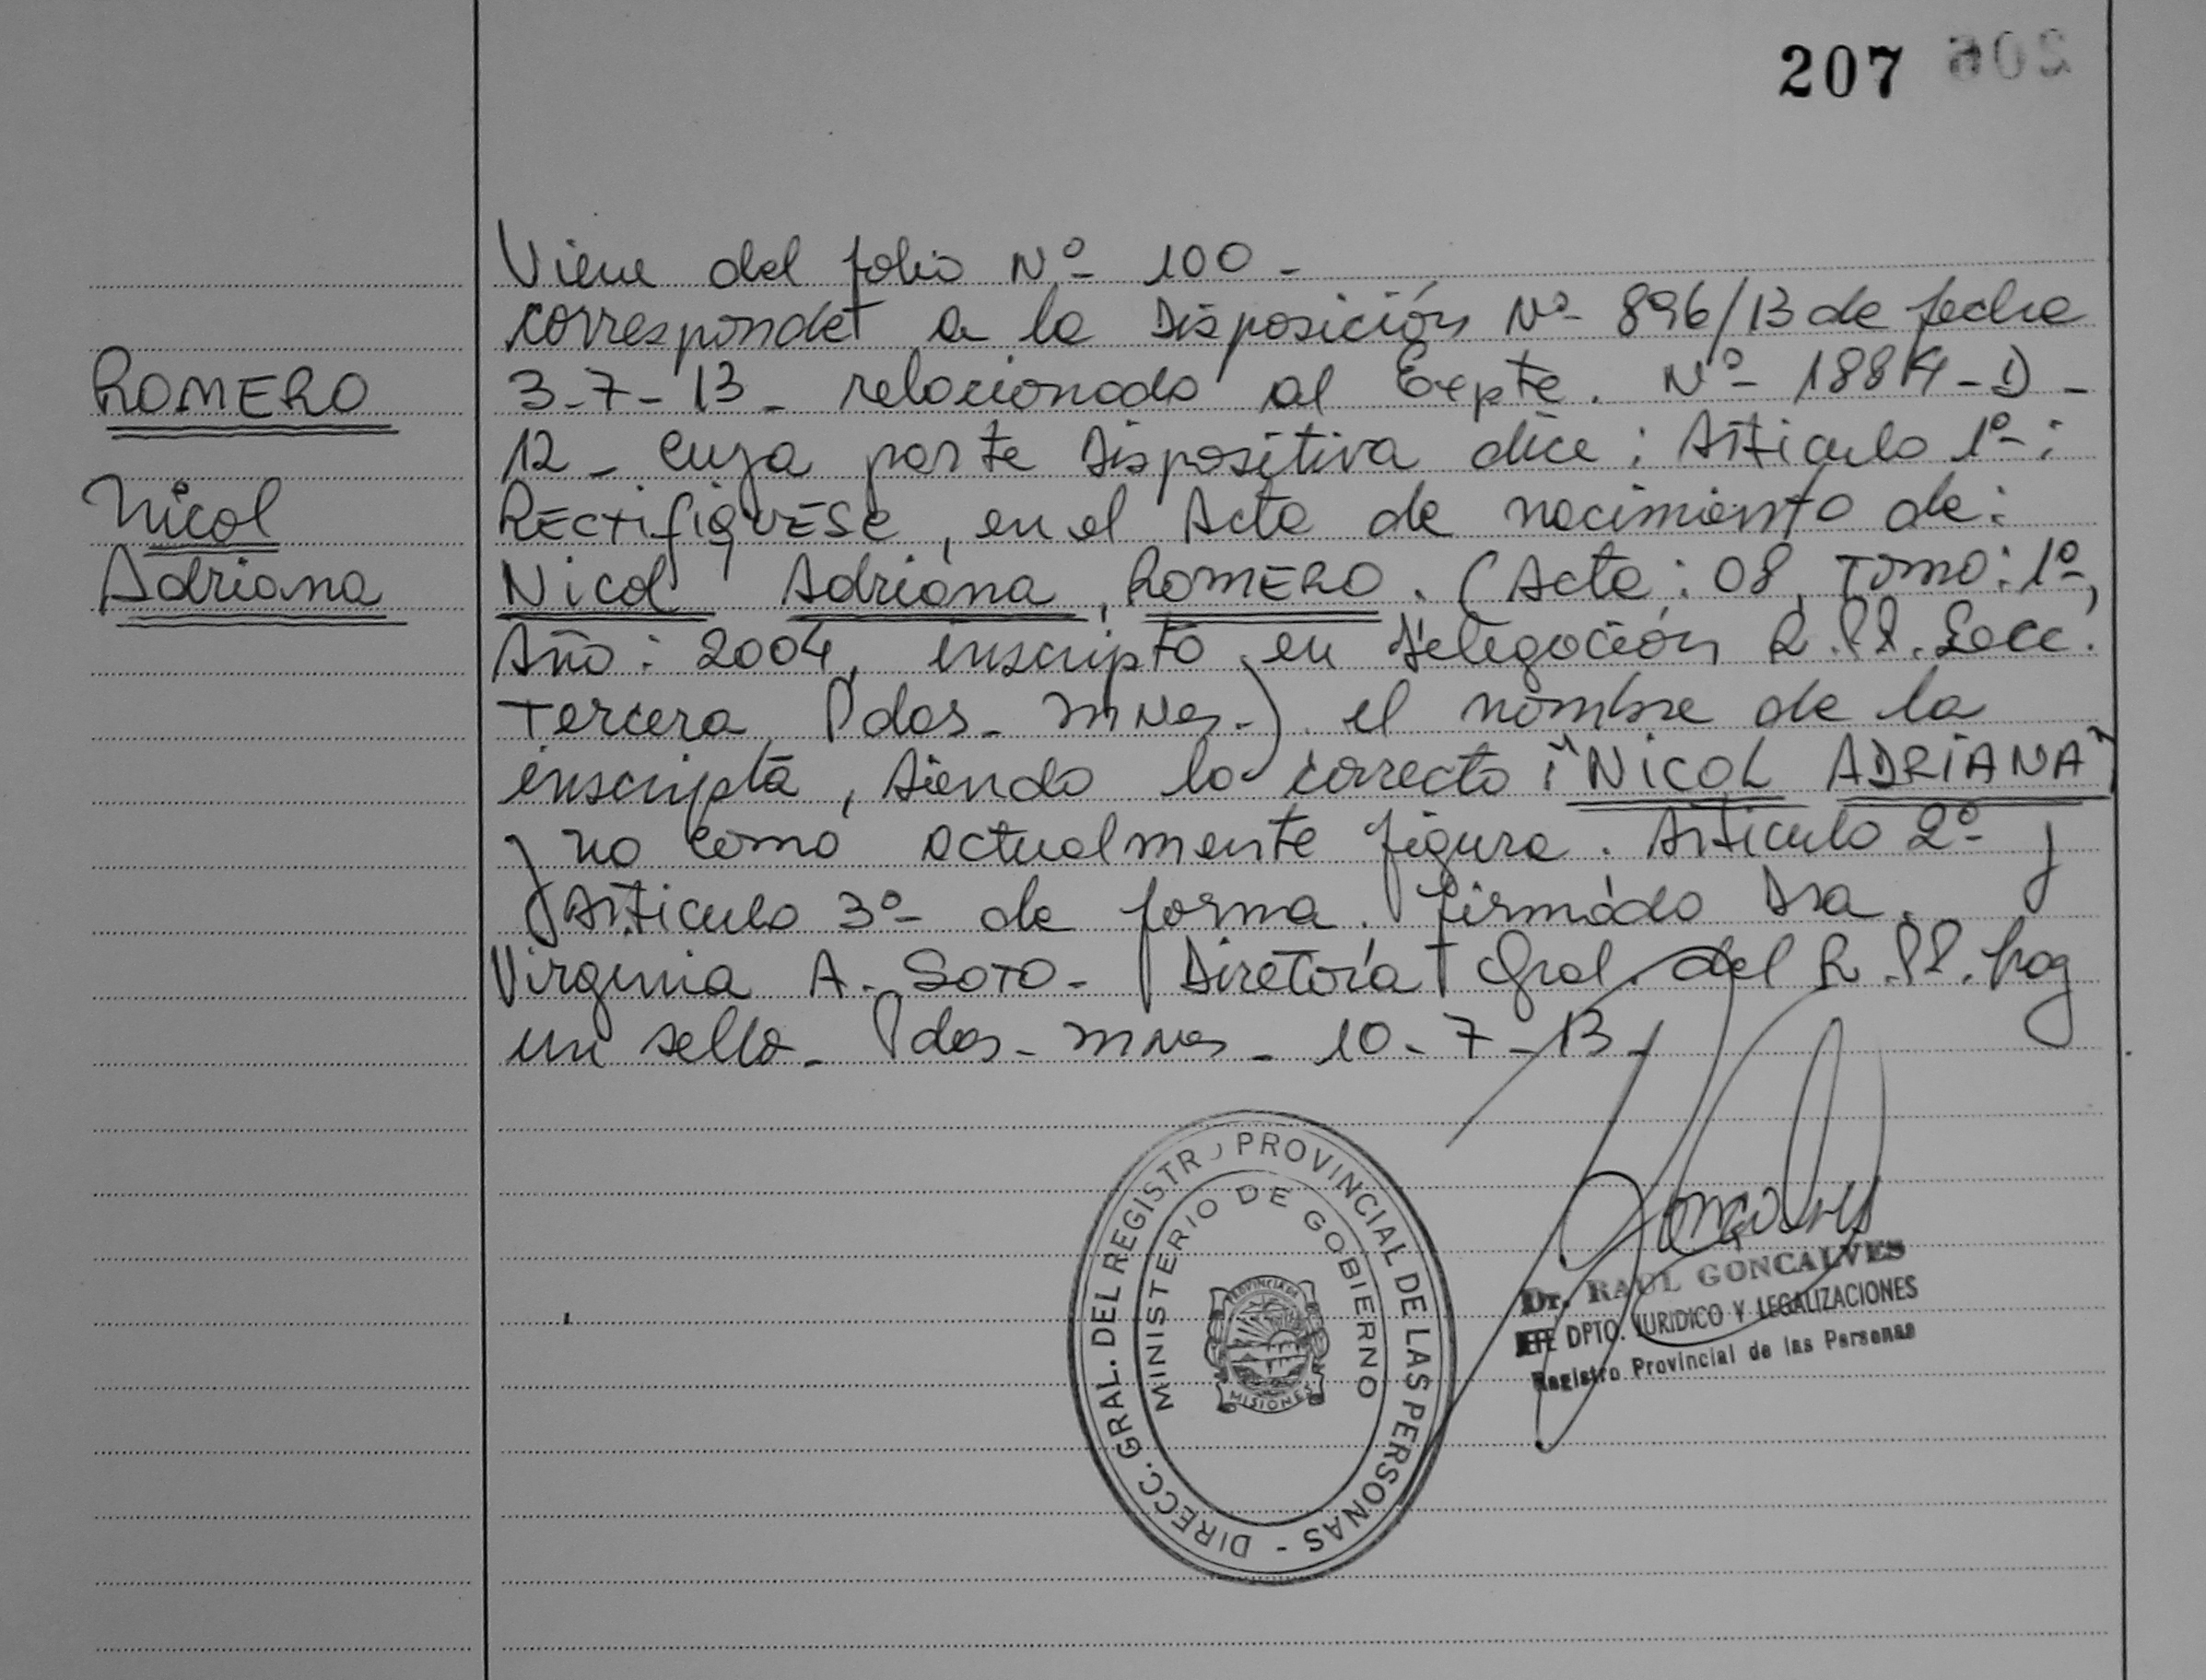 207 206
Viene del folio Nº 100 -
corresponde a la Disposición Nº 896/13 de fecha
3-7-13- relacionado al Expte. Nº 1884-D-
12- cuya parte Dispositiva dice: Artículo 1º:
RECTIFIQUESE, en el Acta de nacimiento de:
Nicol Adriana, ROMERO. (Acta: 08, Tomo: 1º,
Año: 2004, inscripta en Delegación R.PP. Secc.
Tercera Pdas- Mnes.) el nombre de la
inscripta, siendo lo correcto: "NICOL ADRIANA"
y no como actualmente figura. Artículo 2º y
Artículo 3º de forma. firmado Dra.
Virginia A. SOTO- Diretora Gral. del R.PP. hay
un sello- Pdas- Mnes- 10-7-13-
ROMERO
Nicol
Adriana
DIRECC. GRAL. DEL REGISTRO PROVINCIAL DE LAS PERSONAS -
MINISTERIO DE GOBIERNO
PROVINCIA DE
MISIONES
Goncalves
Dr. RAUL GONCALVES
JEFE DPTO. JURIDICO Y LEGALIZACIONES
Registro Provincial de las Personas